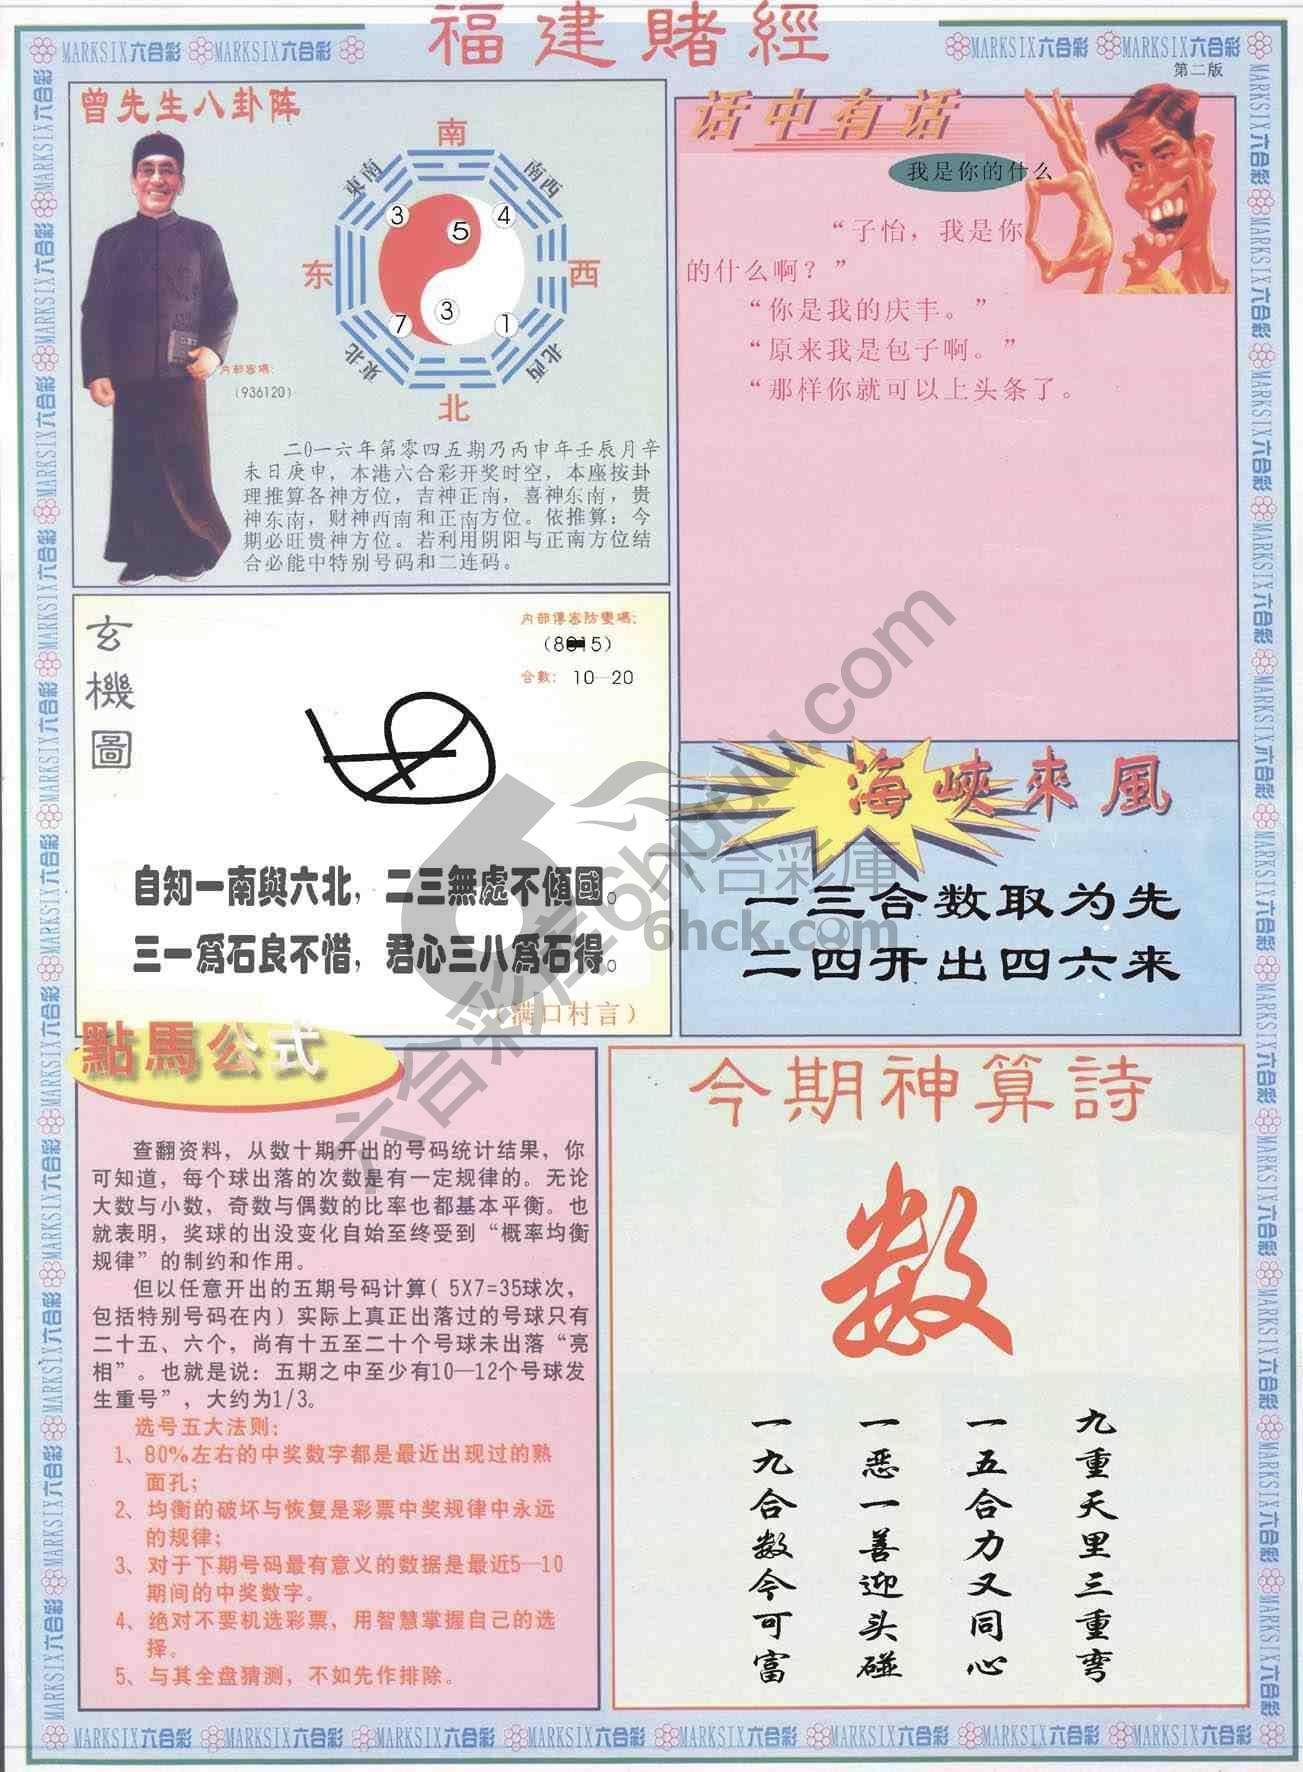 福建賭經
MARKSIX六合彩 MARKSIX六合彩
MARKSIX六合彩 MARKSIX六合彩
第二版
曾先生八卦阵
南
東南
南西
3
5
4
东
西
7
3
1
東北
北西
北
内部密碼：
（936120）
二0一六年第零四五期乃丙申年壬辰月辛
未日庚申，本港六合彩开奖时空，本座按卦
理推算各神方位，吉神正南，喜神东南，贵
神东南，财神西南和正南方位。依推算：今
期必旺贵神方位。若利用阴阳与正南方位结
合必能中特别号码和二连码。
话中有话
我是你的什么
“子怡，我是你
的什么啊？”
“你是我的庆丰。”
“原来我是包子啊。”
“那样你就可以上头条了。
玄機圖
内部傳密防變碼：
合數：10—20
自知一南與六北，二三無處不傾國。
三一爲石良不惜，君心三八爲石得。
（满口村言）
海峽來風
一三合数取为先
二四开出四六来
六合彩庫
6hck.com
點馬公式
查翻资料，从数十期开出的号码统计结果，你
可知道，每个球出落的次数是有一定规律的。无论
大数与小数，奇数与偶数的比率也都基本平衡。也
就表明，奖球的出没变化自始至终受到“概率均衡
规律”的制约和作用。
但以任意开出的五期号码计算( 5X7=35球次，
包括特别号码在内）实际上真正出落过的号球只有
二十五、六个，尚有十五至二十个号球未出落“亮
相”。也就是说：五期之中至少有10—12个号球发
生重号”，大约为1/3。
选号五大法则：
1、80%左右的中奖数字都是最近出现过的熟
面孔；
2、均衡的破坏与恢复是彩票中奖规律中永远
的规律；
3、对于下期号码最有意义的数据是最近5—10
期间的中奖数字。
4、绝对不要机选彩票，用智慧掌握自己的选
择。
5、与其全盘猜测，不如先作排除。
今期神算詩
数
九重天里三重弯
一五合力又同心
一恶一善迎头碰
一九合数今可富
MARKSIX六合彩 MARKSIX六合彩 MARKSIX六合彩 MARKSIX六合彩 MARKSIX六合彩 MARKSIX六合彩 MARKSIX六合彩 MARKSIX六合彩